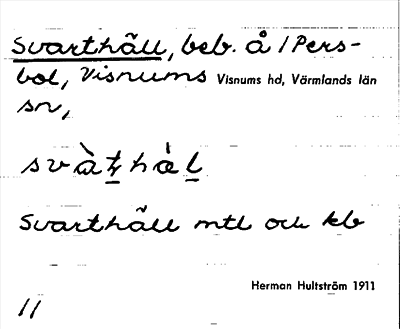 Svarthäll, beb. å / Pers-
bol, Visnums Visnums hd, Värmlands län
sn,
svàṭhàḷ
Svarthäll mtl och kb
Herman Hultström 1911
11